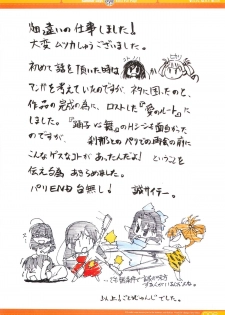 畑違いの仕事しました!
大変ムツカしゅうございました。
初めて話を頂いた時は
マンガを考えていたのですが、ネタに困ったのと、
作品の完成の為に、ロストした『愛のルート』に
しました。『踊子は舞』のHシーンも面白かった
のですが、刹那とのパリでの再会の前に
こんなゲスなコトがあったんだよ!ということ
を伝える為、あきらめました。
パリEND自無し! 誠サイテー。
以上!ごとうじゅんじでした。